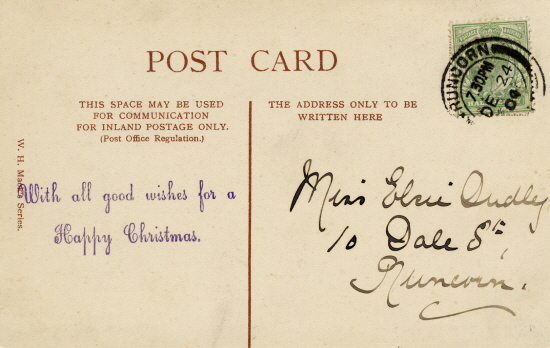 POST CARD
THIS SPACE MAY BE USED
FOR COMMUNICATION
FOR INLAND POSTAGE ONLY.
(Post Office Regulation.)
THE ADDRESS ONLY TO BE
WRITTEN HERE
With all good wishes for a
Happy Christmas.
Miss Elsie Dudley
10 Dale St,
Runcorn.
RUNCORN
7.30PM
DE 24
04
W. H. Series.